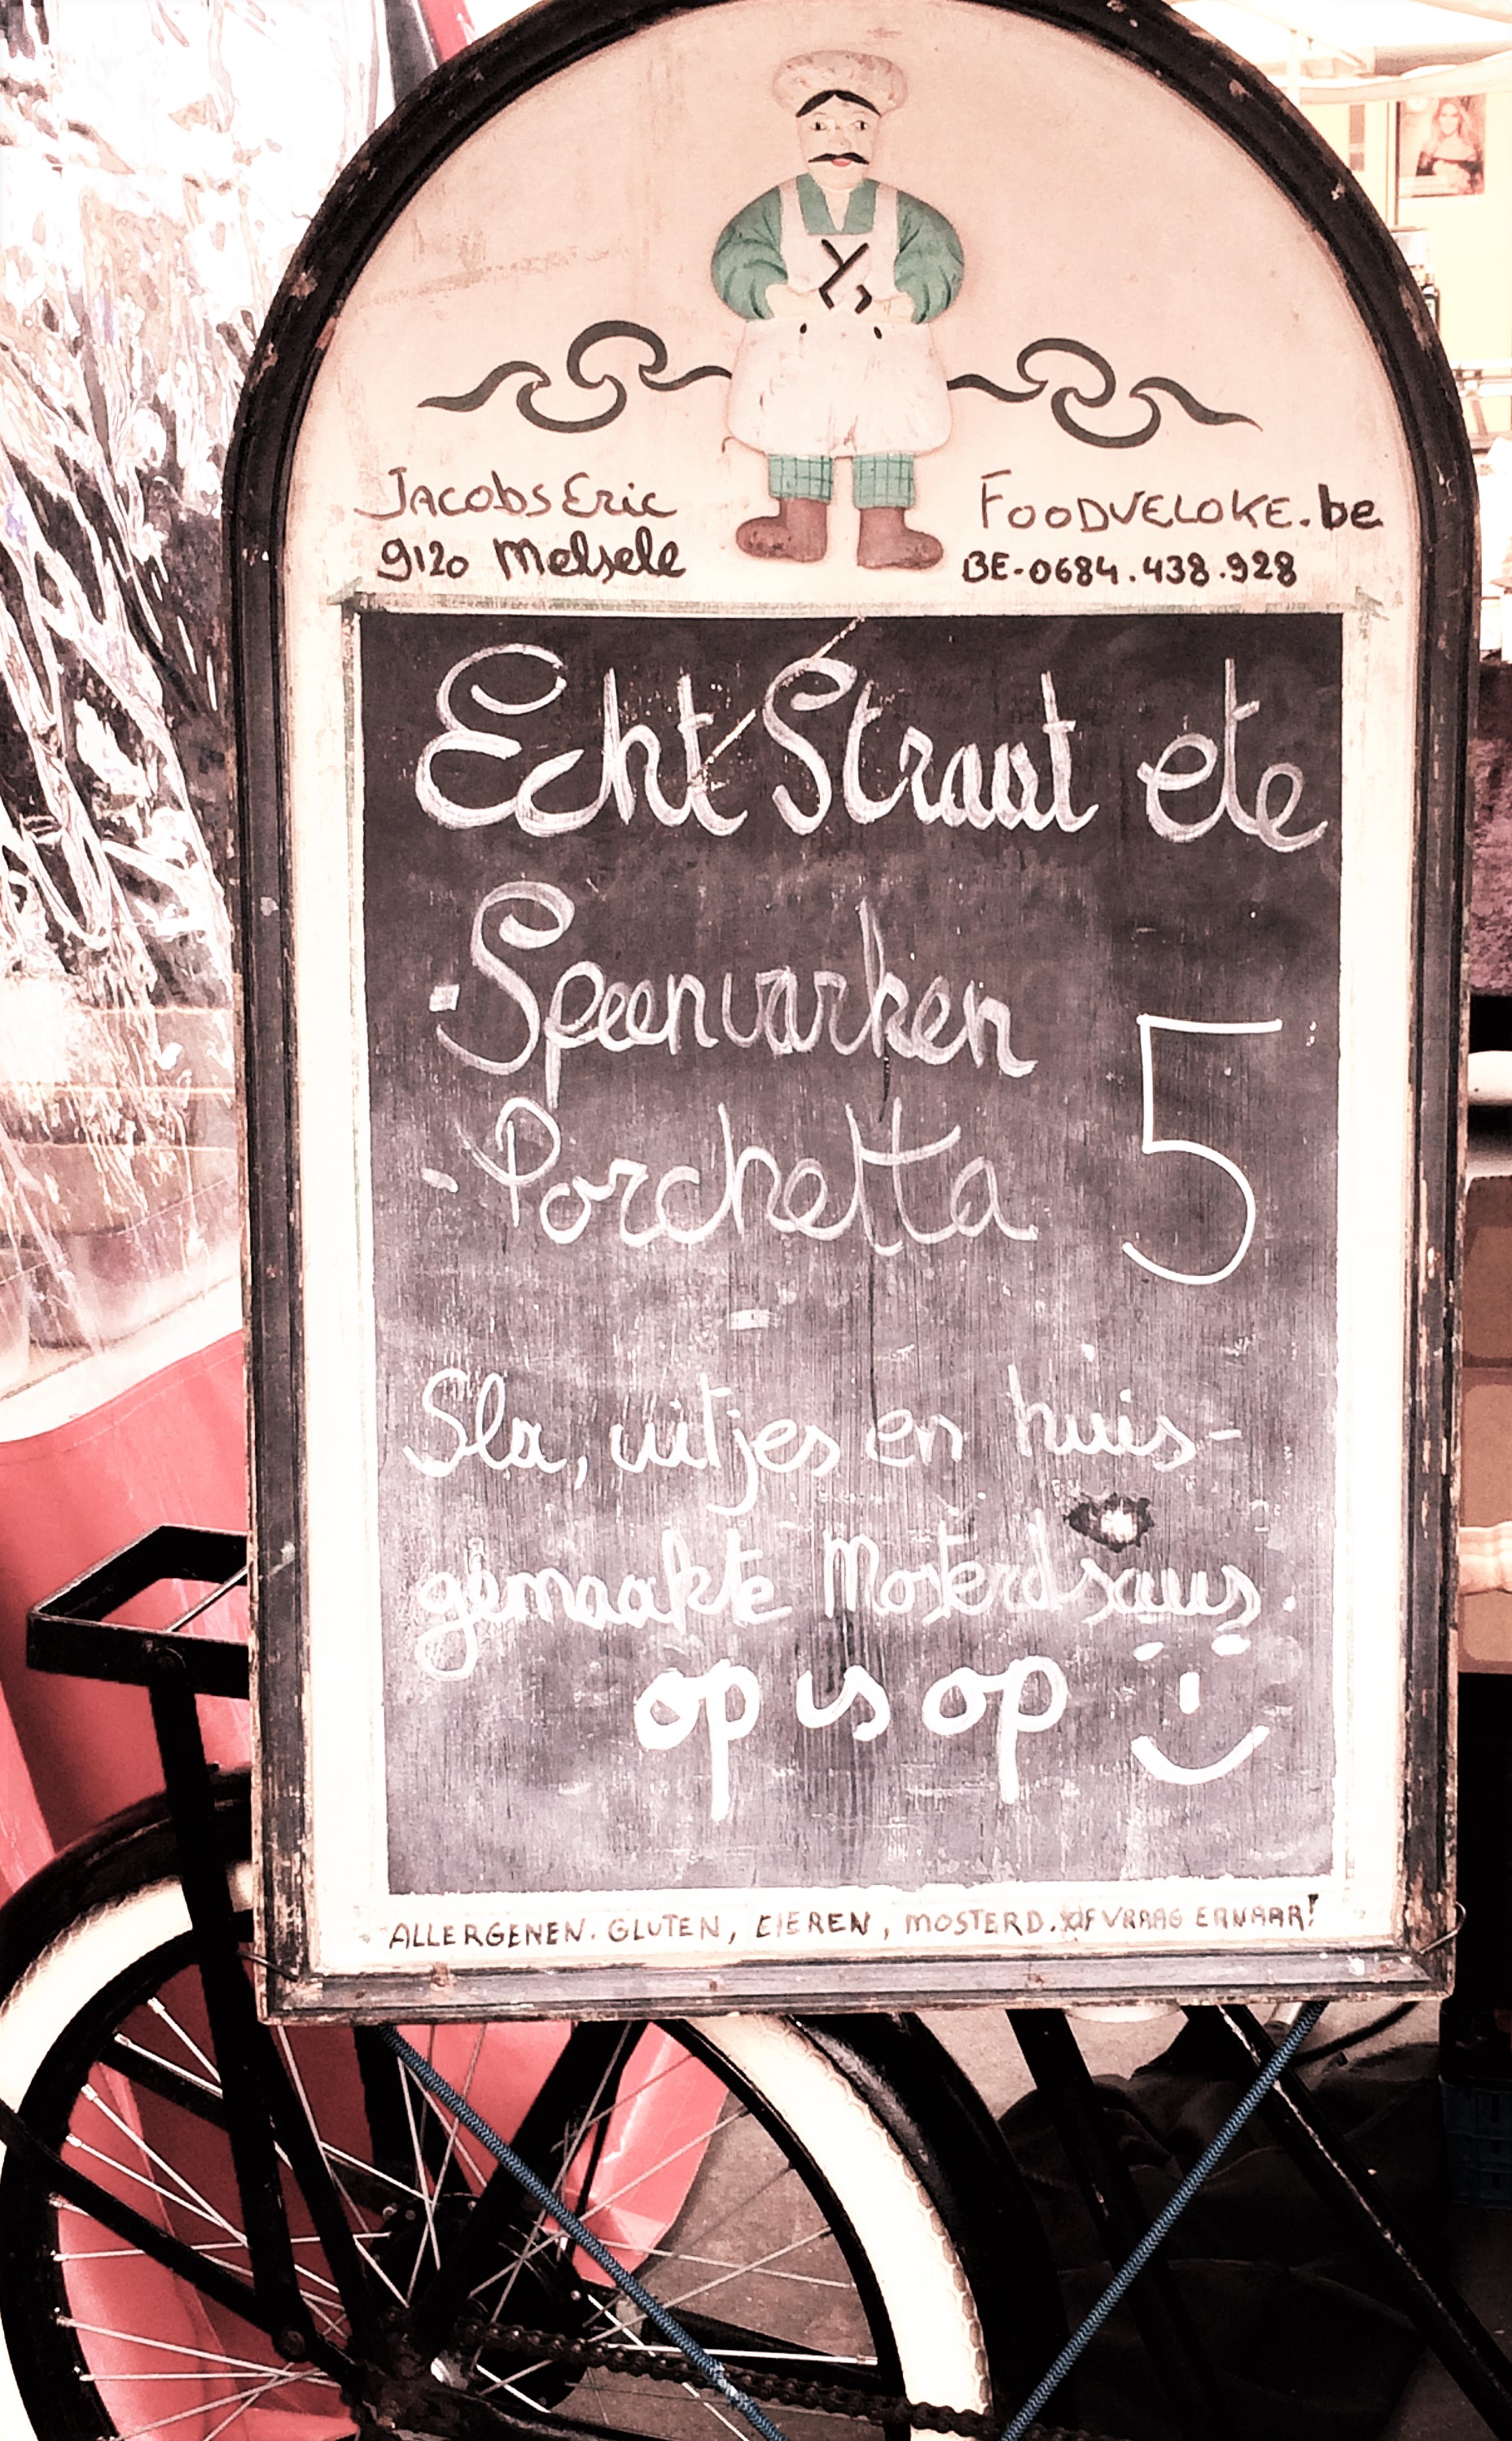 Jacobs Eric
9120 Melsele
FOODVELOKE.be
BE-0684.438.928
Echt Straat ete
- Speenvarken
- Porchetta
5
Sla, uitjes en huis-
gemaakte Mosterdsaus.
op is op
ALLERGENEN. GLUTEN, EIEREN, MOSTERD. OF VRAAG ERNAAR!